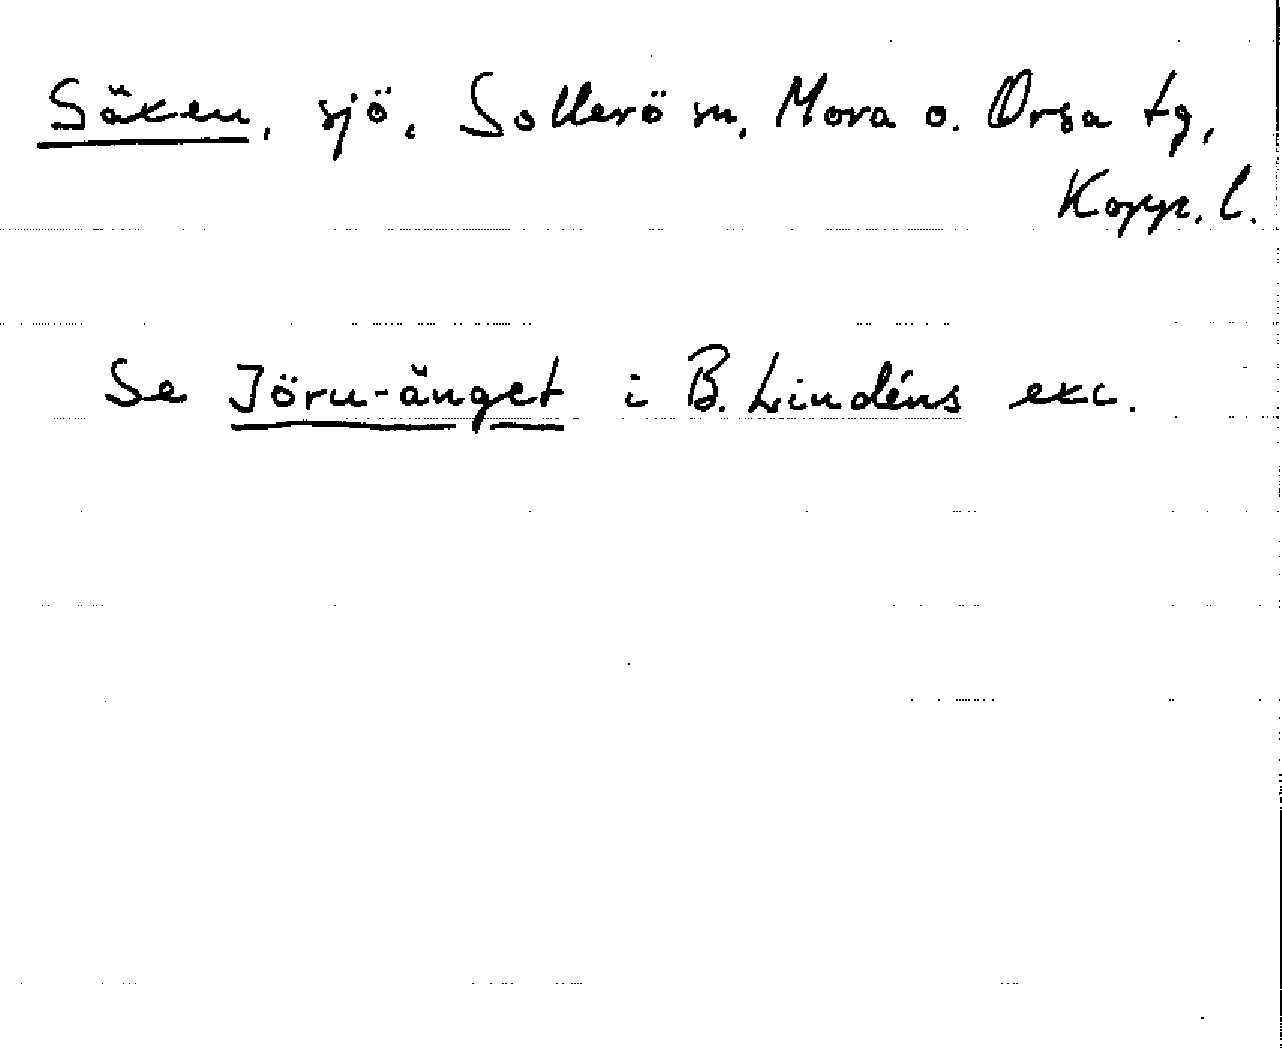 Säxen, sjö, Sollerö sn, Mora o. Orsa tg,
Kopp. l.
Se Jöru-änget i B. Lindéns exc.